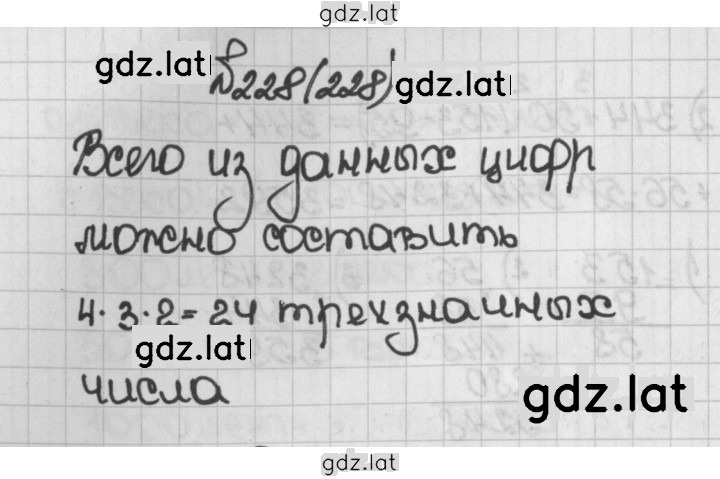 gdz.lat
gdz.lat
№228(228)
gdz.lat
Всего из данных цифр
можно составить
4·3·2=24 трехзначных
gdz.lat
числа
gdz.lat
gdz.lat